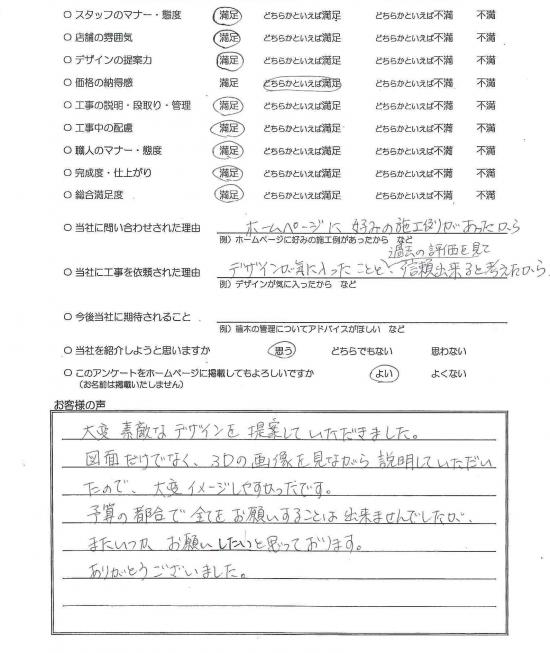 ○ スタッフのマナー・態度 満足 どちらかといえば満足 どちらかといえば不満 不満
○ 店舗の雰囲気 満足 どちらかといえば満足 どちらかといえば不満 不満
○ デザインの提案力 満足 どちらかといえば満足 どちらかといえば不満 不満
○ 価格の納得感 満足 どちらかといえば満足 どちらかといえば不満 不満
○ 工事の説明・段取り・管理 満足 どちらかといえば満足 どちらかといえば不満 不満
○ 工事中の配慮 満足 どちらかといえば満足 どちらかといえば不満 不満
○ 職人のマナー・態度 満足 どちらかといえば満足 どちらかといえば不満 不満
○ 完成度・仕上がり 満足 どちらかといえば満足 どちらかといえば不満 不満
○ 総合満足度 満足 どちらかといえば満足 どちらかといえば不満 不満
○ 当社に問い合わせされた理由 ホームページに好みの施工例があったから
例）ホームページに好みの施工例があったから など
過去の評価を見て
○ 当社に工事を依頼された理由 デザインが気に入ったことと、信頼出来ると考えたから
例）デザインが気に入ったから など
○ 今後当社に期待されること
例）植木の管理についてアドバイスがほしい など
○ 当社を紹介しようと思いますか 思う どちらでもない 思わない
○ このアンケートをホームページに掲載してもよろしいですか よい よくない
（お名前は掲載いたしません）
お客様の声
大変 素敵なデザインを 提案していただきました。
図面だけでなく、3Dの画像を見ながら 説明していただい
たので、大変イメージしやすかったです。
予算の都合で 全てを お願いすることは 出来ませんでしたが、
またいつか お願いしたいと思っております。
ありがとうございました。